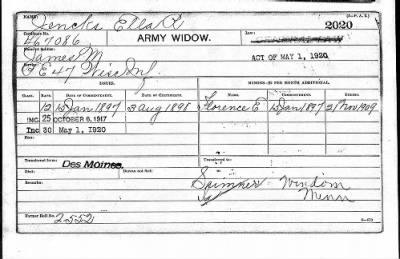 NAME: (3—P. A. I.)
Jencks Ella R 2020
Certificate No. ARMY WIDOW. Law:
467086 GENERAL LAW
James M. ACT OF MAY 1, 1920
E 47 Wisc Inf
ISSUE. MINORS—$2 PER MONTH ADDITIONAL.
CLASS. RATE. DATE OF COMMENCEMENT. DATE OF CERTIFICATE. NAME. COMMENCEMENT. ENDING.
12 15 Jan 1897 3 Aug 1898 Florence E 15 Jan 1897 21 Nov 1909
INC. 25 OCTOBER 6, 1917
Inc 30 May 1, 1920
Transferred from: Des Moines. Transferred to:
Died:
Remarks: Windom
Minn
Former Roll No. 2552